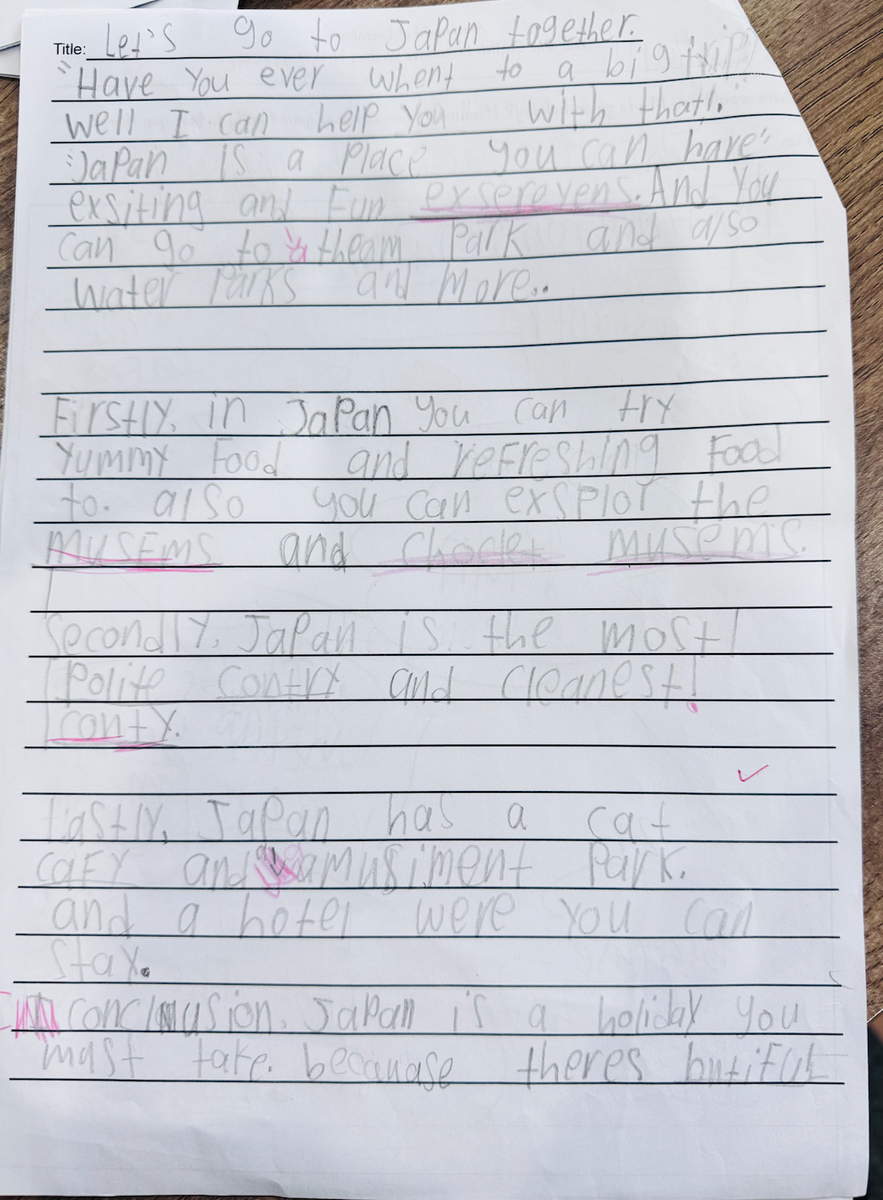 Title: Let's go to Japan together.
"Have you ever whent to a big trip?
well I can help you with that!."
"Japan is a place you can have"
exsiting and Fun exserevens. And you
can go to a theam park and also
water Parks and more..
Firstly, in Japan you can try
yummy Food and reFreshing Food
to. also you can exsplor the
musEms and Choclet musems.
Secondly, Japan is the most
Polite contry and cleanest!
conty.
Lastly, Japan has a cat
caFy and amusiment Park.
and a hotel were you can
stay.
In conclusion, Japan is a holiday you
must take. becauase theres butiful